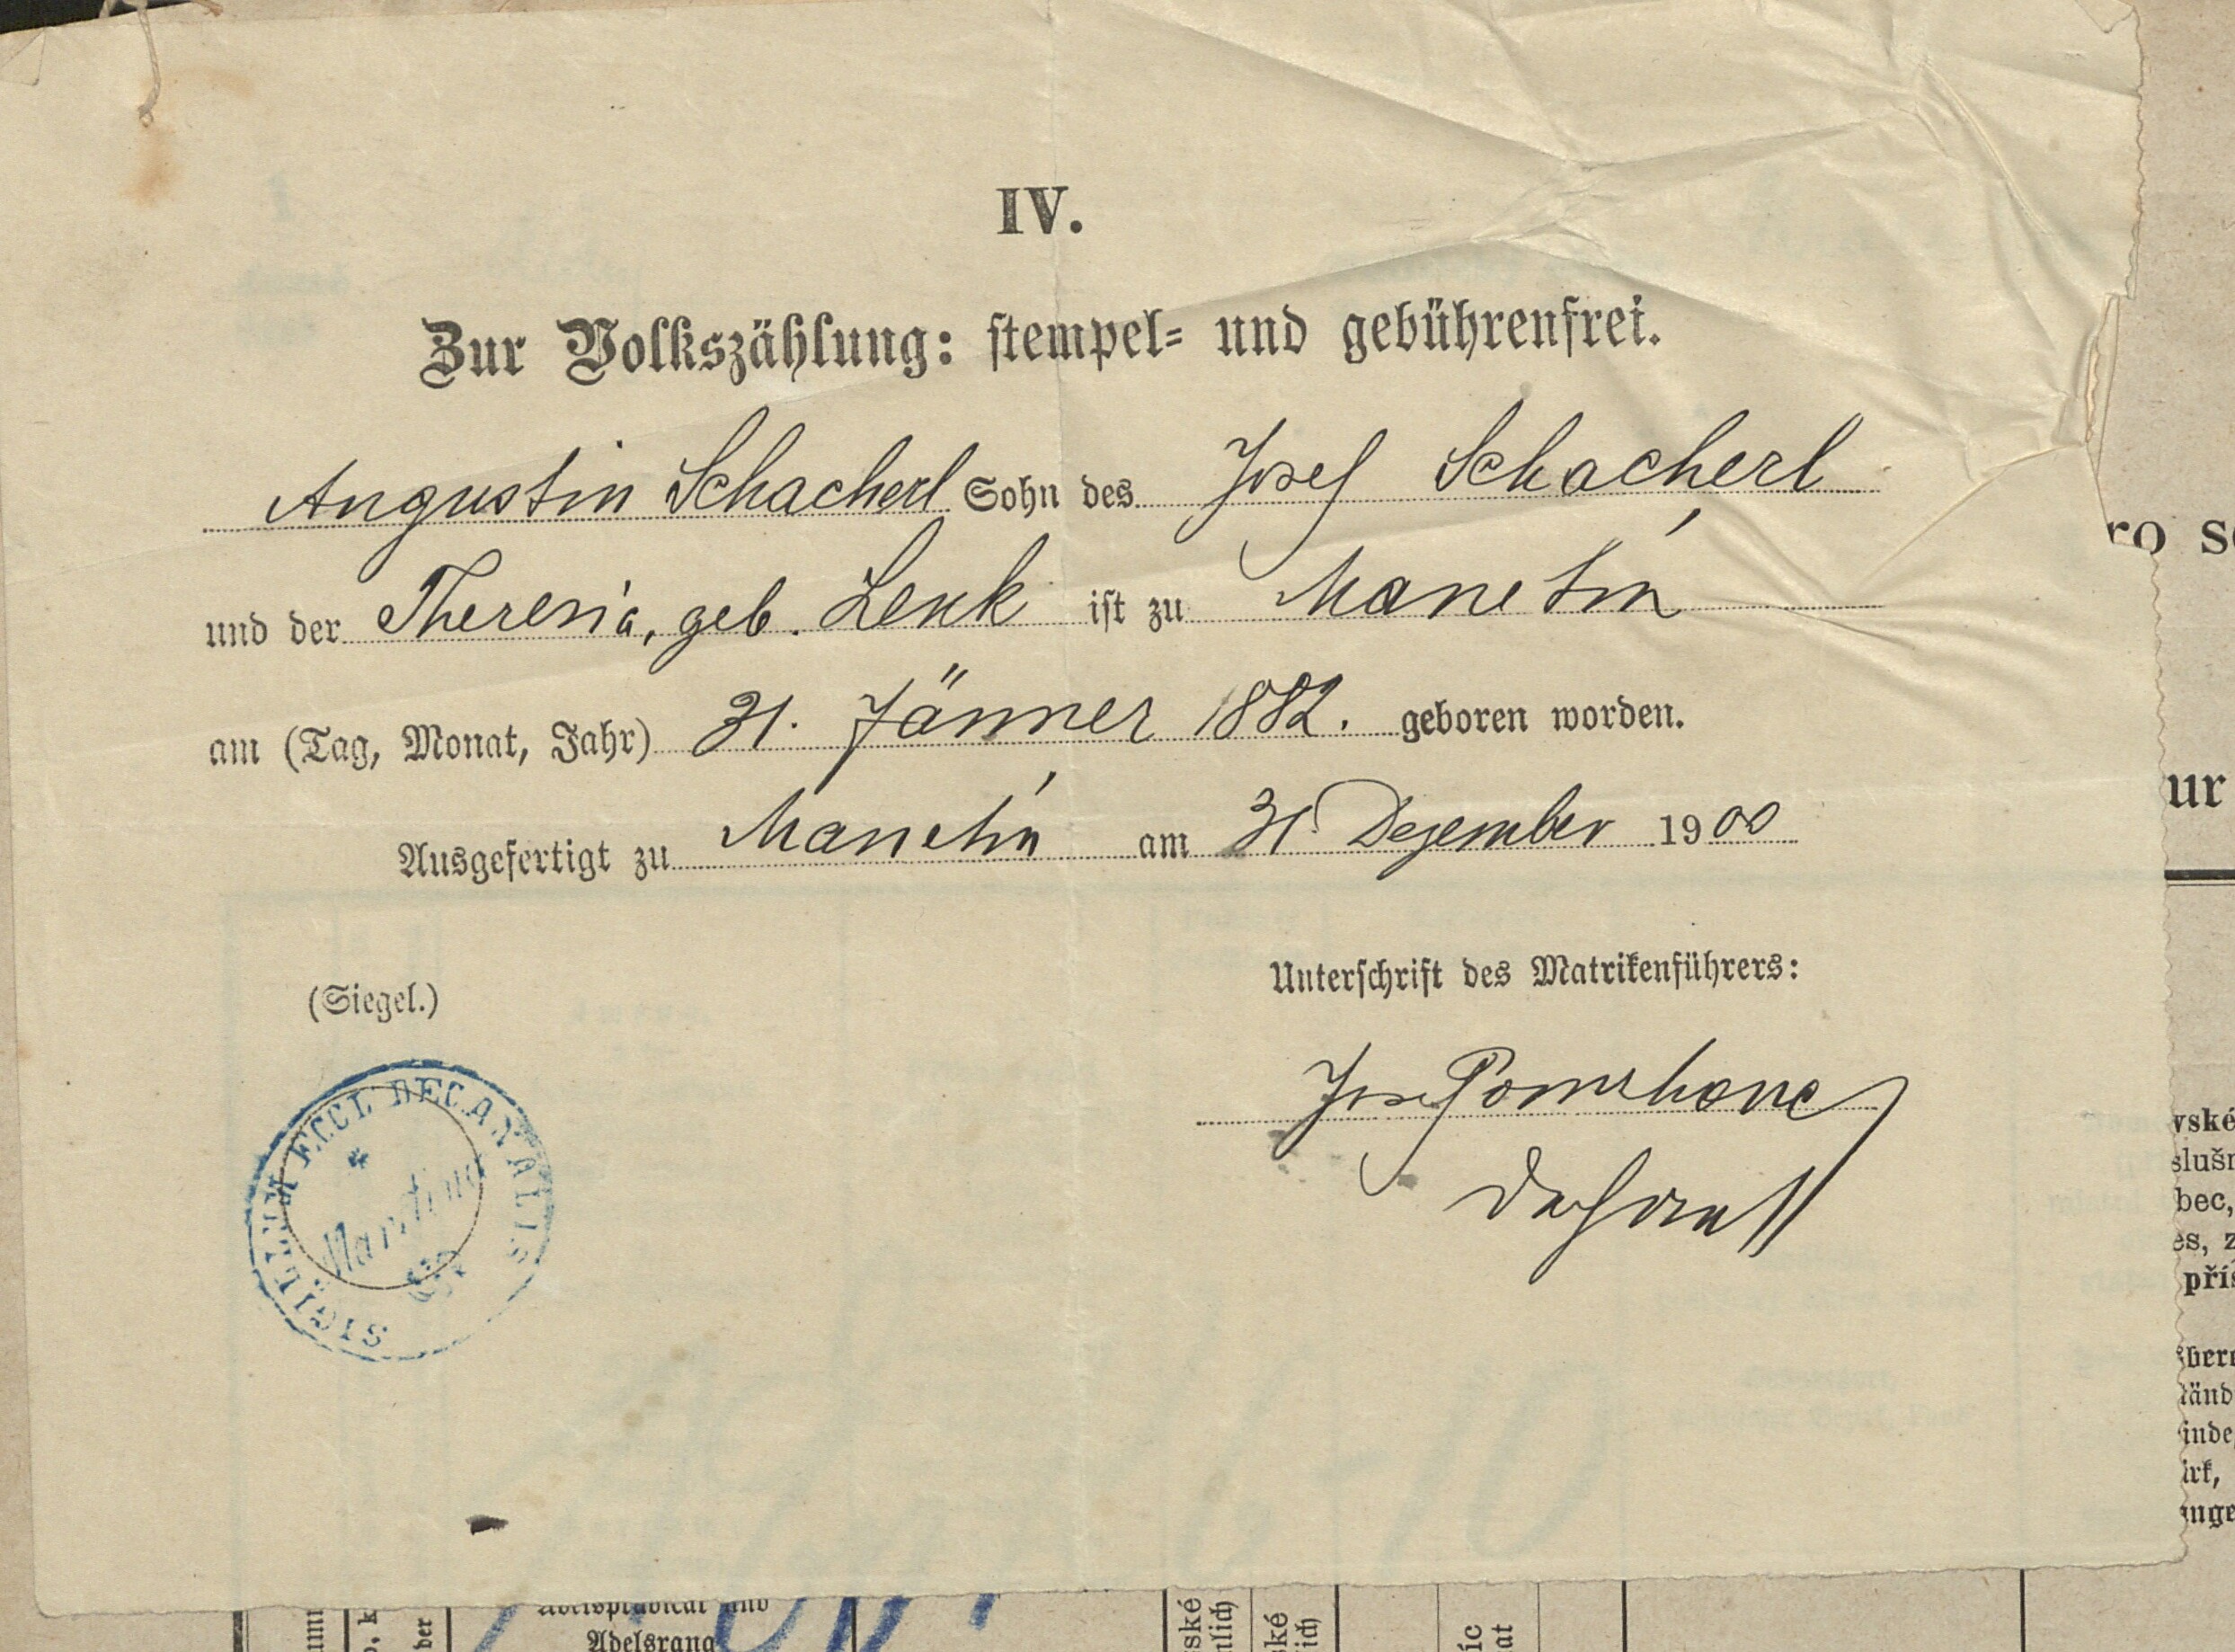 IV.
Zur Volkszählung: stempel- und gebührenfrei.
Augustin Schacherl Sohn des Josef Schacherl
und der Theresia, geb. Lenk ist zu Manetín
am (Tag, Monat, Jahr) 31. Jänner 1882. geboren worden.
Ausgefertigt zu Manetín am 31. Dezember 1900
Unterschrift des Matrikenführers:
(Siegel.)
Josef
Dechant
SIGILLUM ECCL DECANALIS
ro
ur
vské
slušn
bec,
es, z
přís
Adelsprädicat und
Adelsrang
der